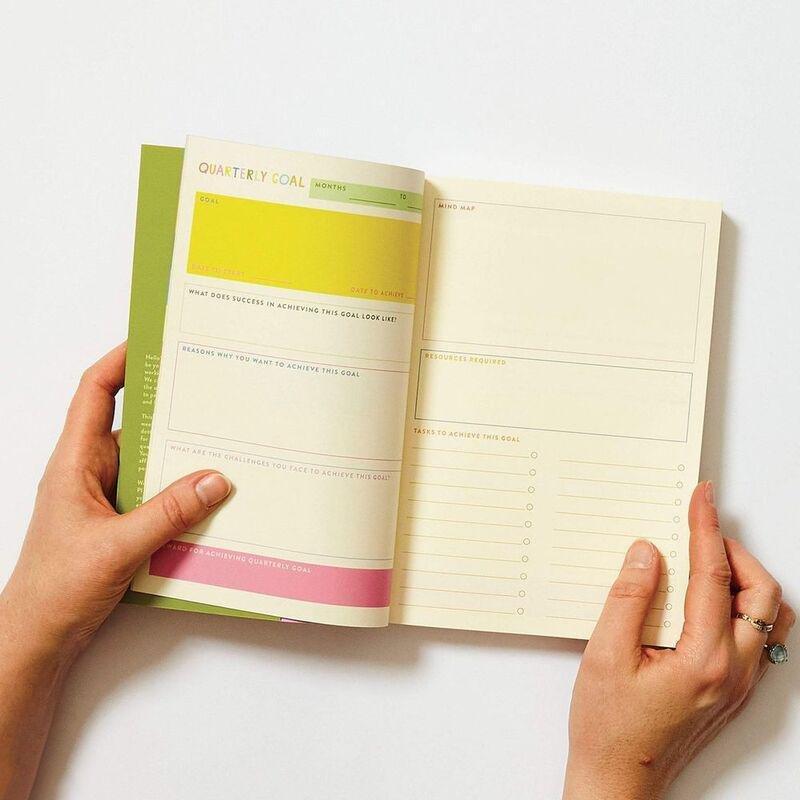 QUARTERLY GOAL
MONTHS TO
GOAL
DATE TO START
DATE TO ACHIEVE
WHAT DOES SUCCESS IN ACHIEVING THIS GOAL LOOK LIKE?
REASONS WHY YOU WANT TO ACHIEVE THIS GOAL
WHAT ARE THE CHALLENGES YOU FACE TO ACHIEVE THIS GOAL?
FOR ACHIEVING QUARTERLY GOAL
Hello
be yo
MIND MAP
RESOURCES REQUIRED
TASKS TO ACHIEVE THIS GOAL